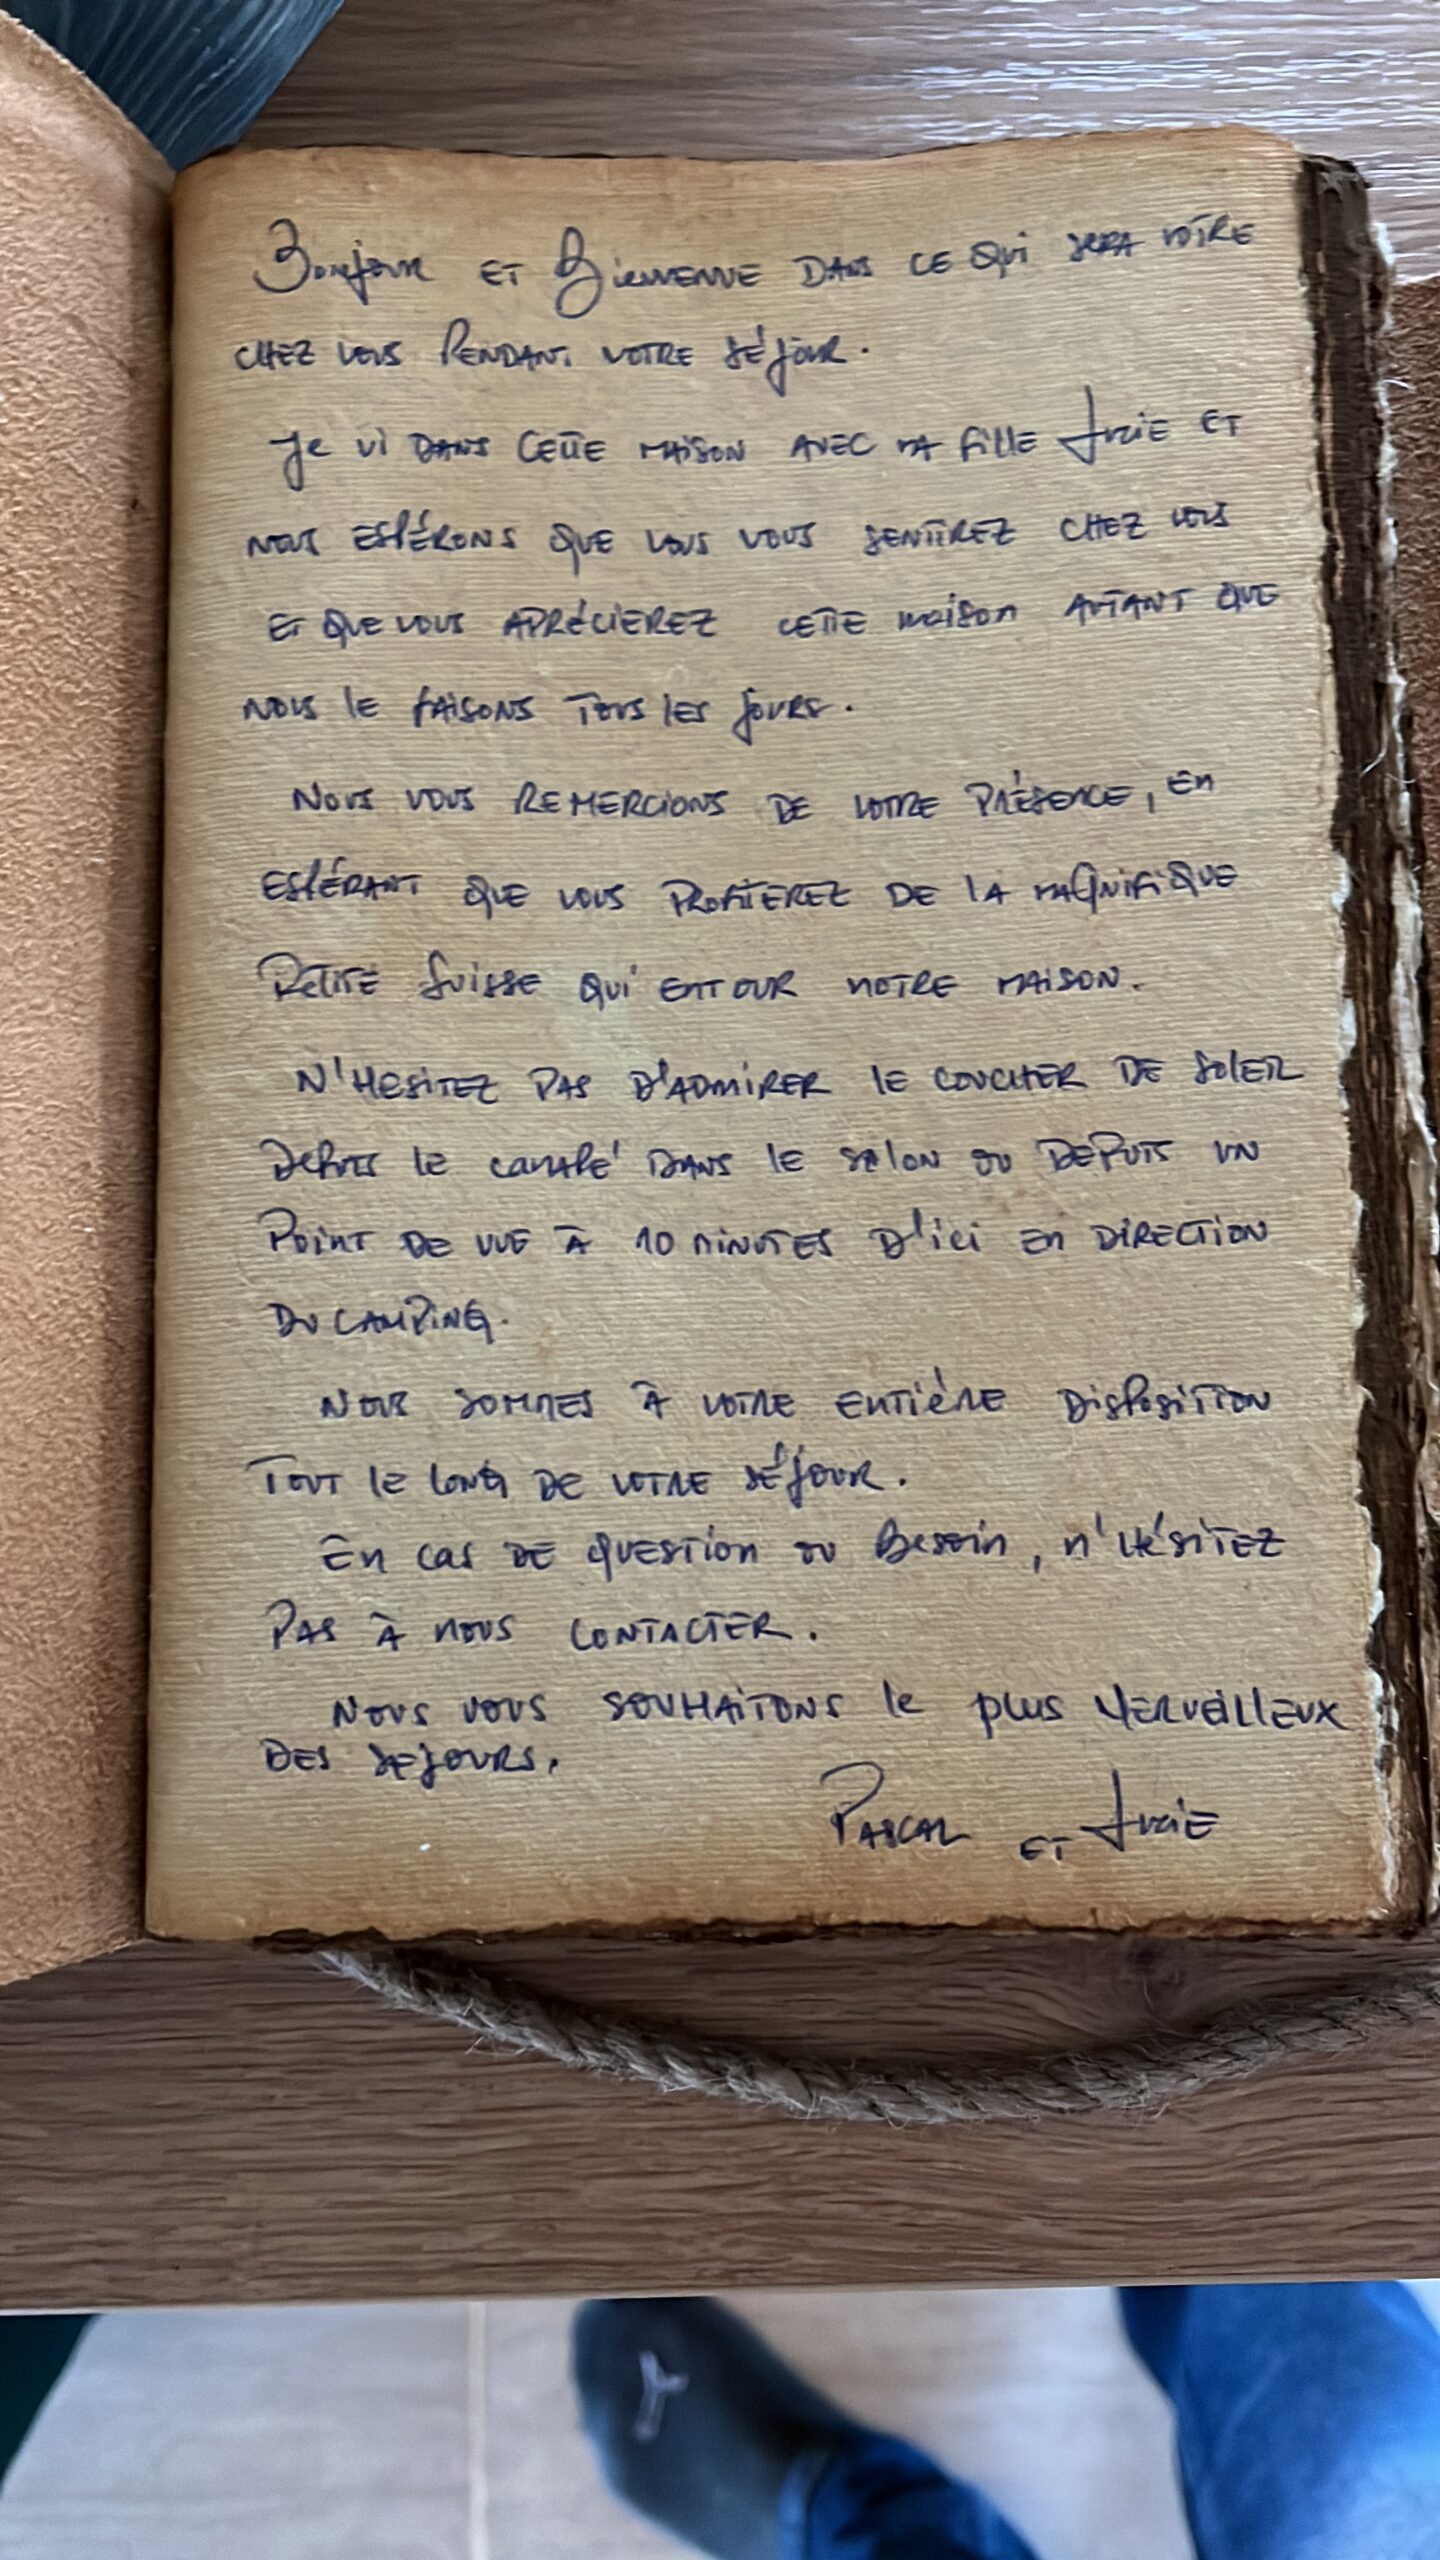 Bonjour et Bienvenue dans ce qui sera votre
chez vous pendant votre séjour.
Je vi dans cette maison avec ma fille Lucie et
nous espérons que vous vous sentirez chez vous
et que vous aprécierez cette maison autant que
nous le faisons tous les jours.
Nous vous remercions de votre présence, en
espérant que vous profiterez de la magnifique
Petite Suisse qui entour notre maison.
N'hesitez pas d'admirer le coucher de soleil
depuis le canapé dans le salon ou depuis un
point de vue à 10 minutes d'ici en direction
du camping.
Nous sommes à votre entière disposition
tout le long de votre séjour.
En cas de question ou besoin, n'hésitez
pas à nous contacter.
Nous vous souhaitons le plus merveilleux
des sejours.
Pascal et Lucie